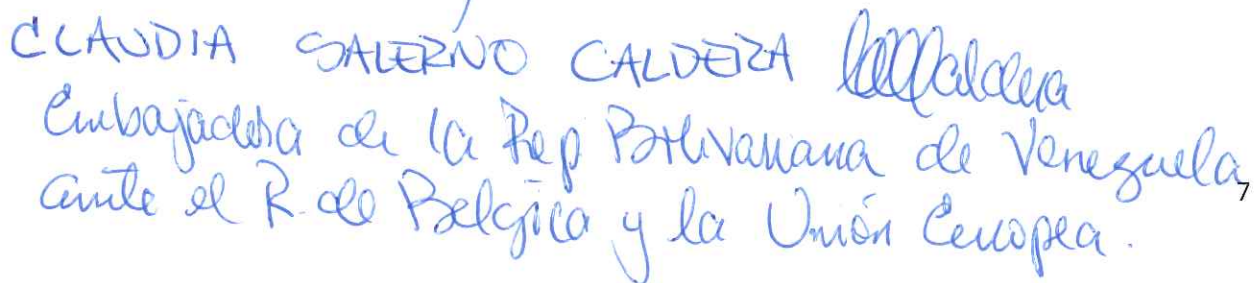 CLAUDIA SALERNO CALDERA
Embajadora de la Rep Bolivariana de Venezuela
ante el R. de Belgica y la Unión Europea.
7